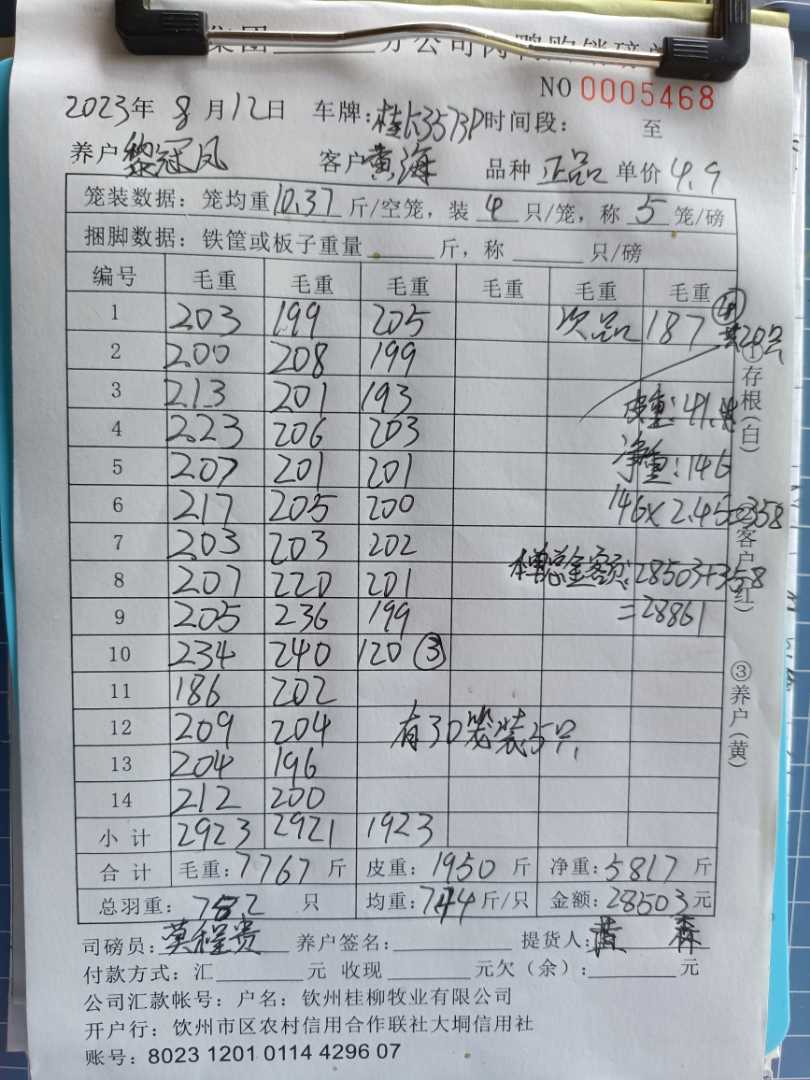 集团 分公司肉鸭购销磅单
NO 0005468
2023年 8月12日 车牌:桂K3573P时间段: 至
养户黎冠凤 客户黄海 品种 正品 单价4.9
笼装数据:笼均重10.37斤/空笼,装 4 只/笼,称 5 笼/磅
捆脚数据:铁筐或板子重量 斤,称 只/磅
编号 毛重 毛重 毛重 毛重 毛重 毛重
1 203 199 205 次品 187 ④
共20只
2 200 208 199
3 213 201 193 皮重:41.
4 223 206 203
5 207 201 201 净重:146
6 217 205 200 146×2.45=358
7 203 203 202
8 207 220 201 总金额:28503+358
9 205 236 199 =28861
10 234 240 120 ③
11 186 202
12 209 204 有30笼装5只
13 204 196
14 212 200
小计 2923 2921 1923
合计 毛重:7767斤 皮重:1950斤 净重:5817斤
总羽重:782 只 均重:7.44斤/只 金额:28503元
司磅员:莫程贵 养户签名: 提货人:黄森
付款方式:汇 元 收现 元欠(余): 元
公司汇款帐号:户名:钦州桂柳牧业有限公司
开户行:饮州市区农村信用合作联社大垌信用社
账号:8023 1201 0114 4296 07
①存根(白)
②客户(红)
③养户(黄)